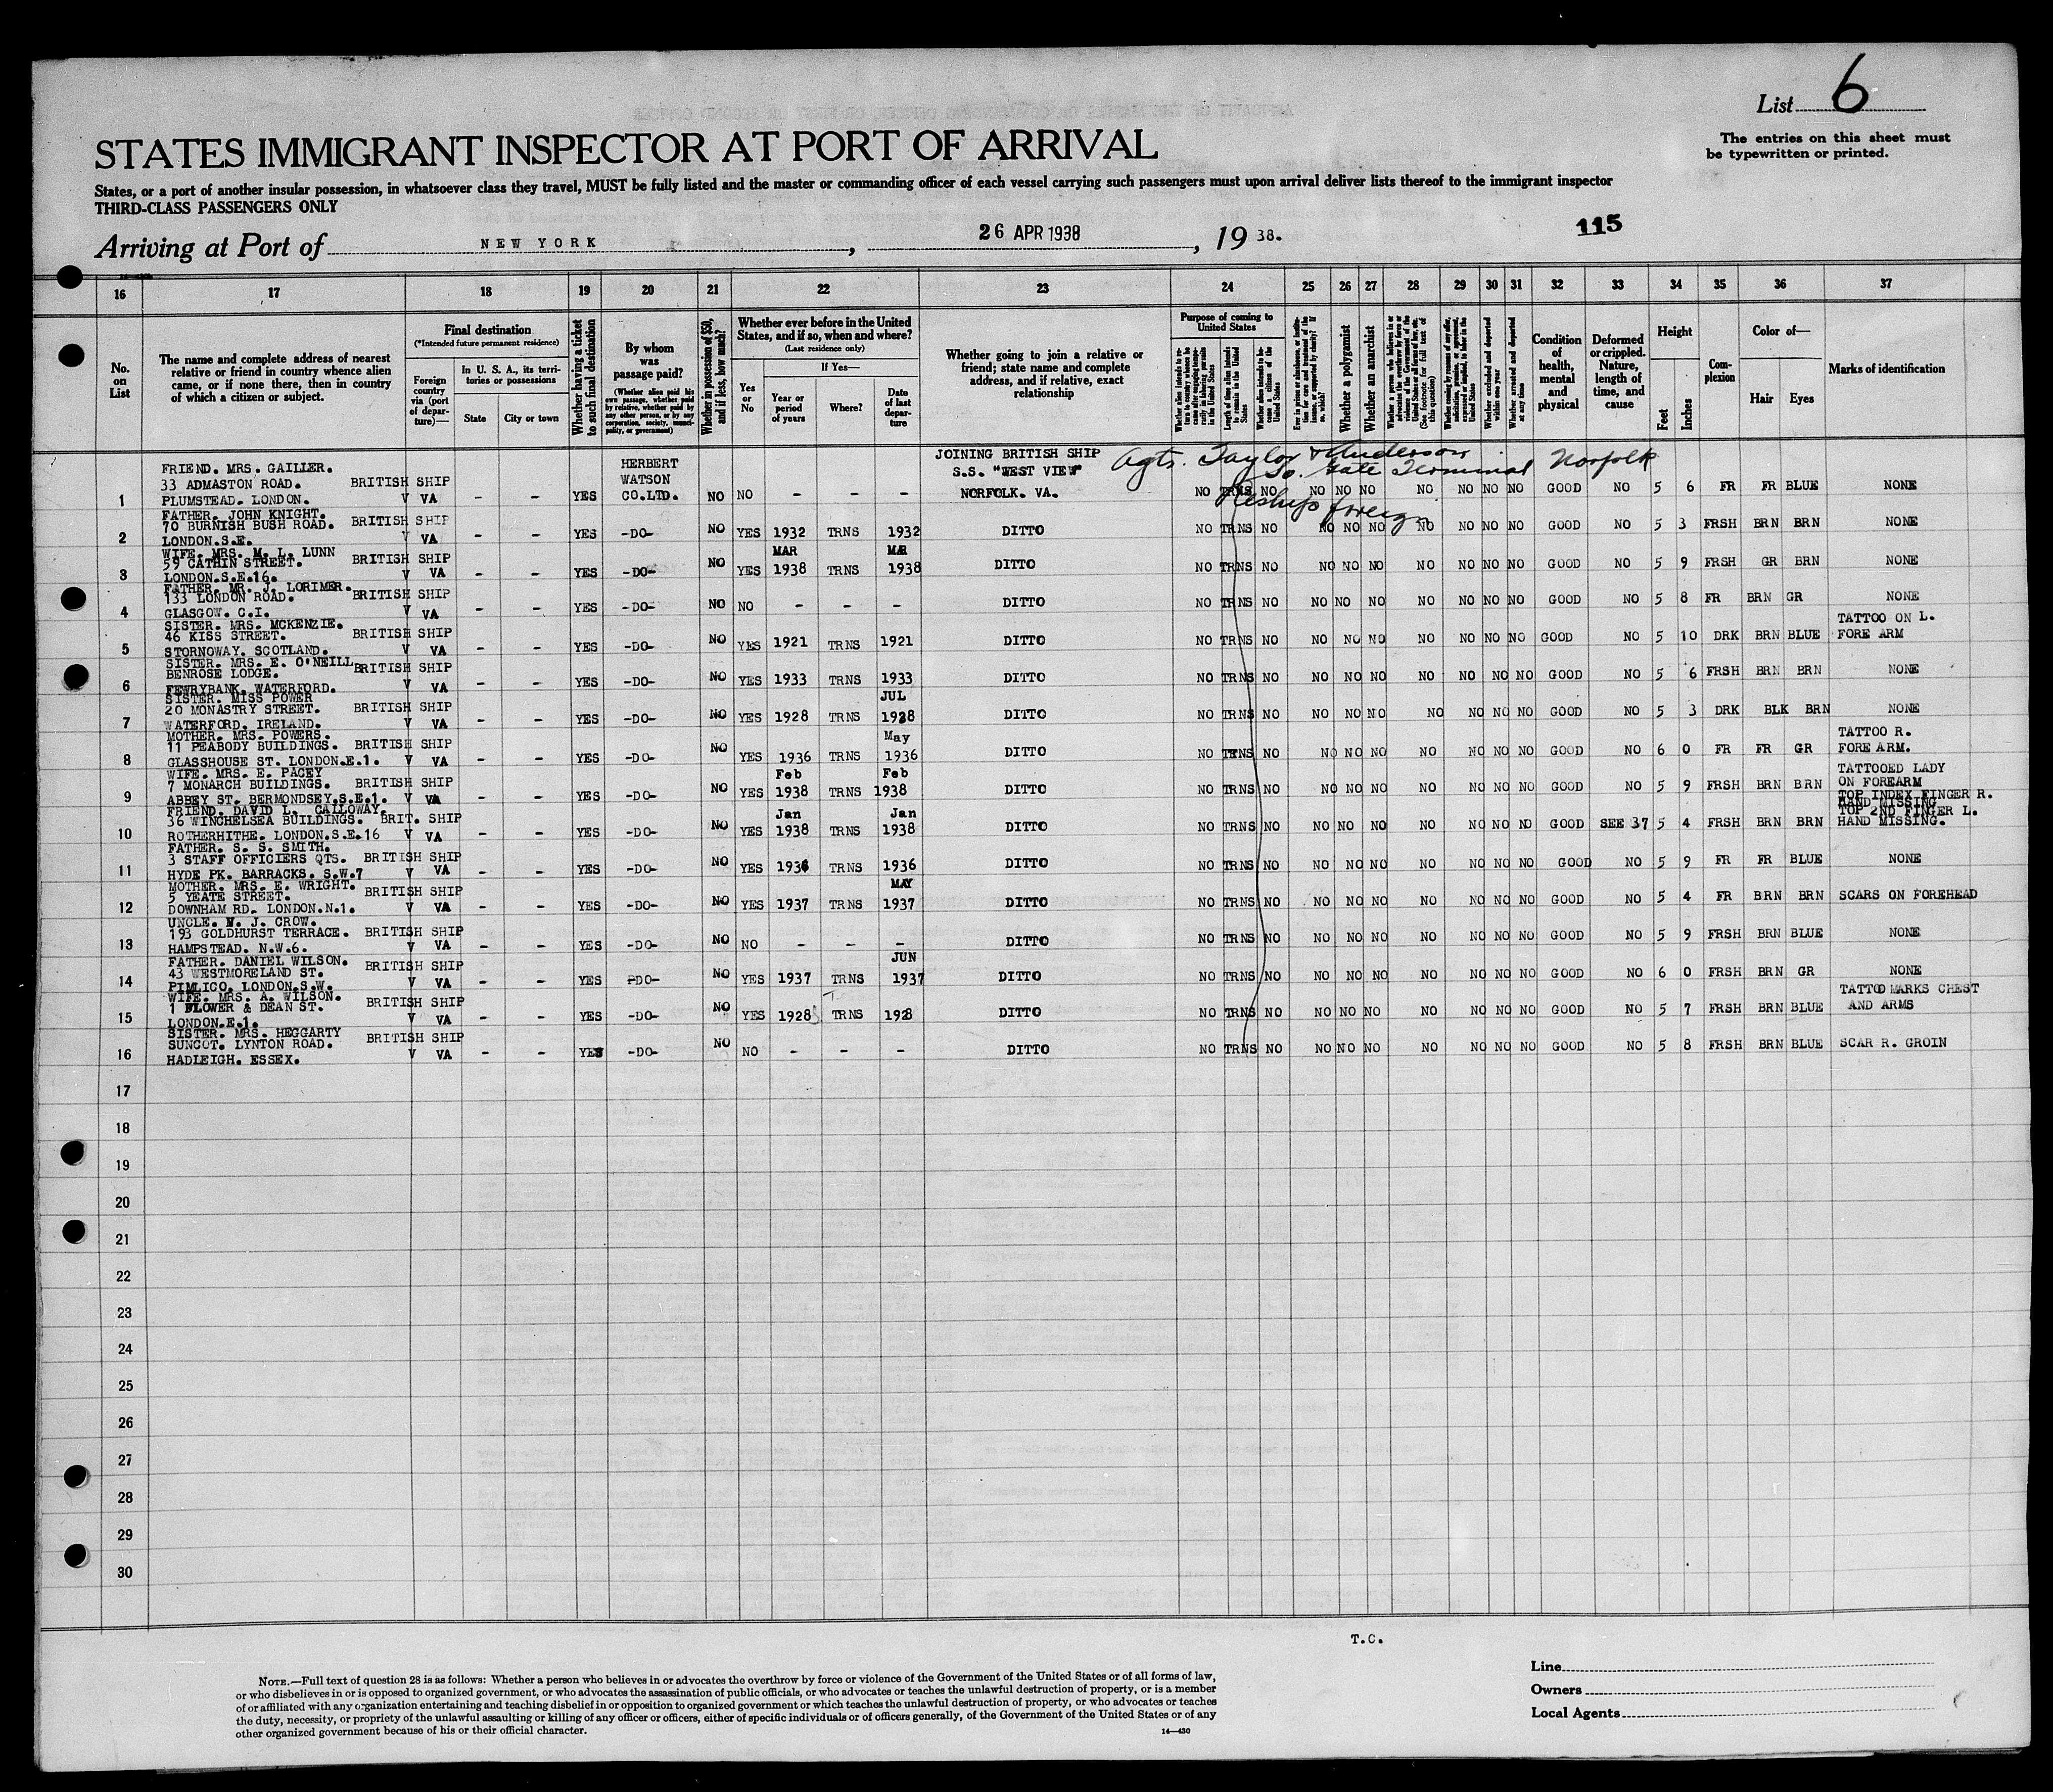 List 6
The entries on this sheet must
be typewritten or printed.
STATES IMMIGRANT INSPECTOR AT PORT OF ARRIVAL
States, or a port of another insular possession, in whatsoever class they travel, MUST be fully listed and the master or commanding officer of each vessel carrying such passengers must upon arrival deliver lists thereof to the immigrant inspector
THIRD-CLASS PASSENGERS ONLY
115
Arriving at Port of NEW YORK, 26 APR 1938, 19 38.
16 17 18 19 20 21 22 23 24 25 26 27 28 29 30 31 32 33 34 35 36 37
No. on List
The name and complete address of nearest relative or friend in country whence alien came, or if none there, then in country of which a citizen or subject.
Final destination
(*Intended future permanent residence)
Foreign country via (port of departure)—
In U. S. A., its territories or possessions
State
City or town
Whether having a ticket to such final destination
By whom was passage paid?
(Whether alien paid his own passage, whether paid by relative, whether paid by any other person, or by any corporation, society, municipality, or government)
Whether in possession of $50, and if less, how much?
Whether ever before in the United States, and if so, when and where?
(Last residence only)
Yes or No
If Yes—
Year or period of years
Where?
Date of last departure
Whether going to join a relative or friend; state name and complete address, and if relative, exact relationship
Purpose of coming to United States
Length of time alien intends to remain in the United States
Whether alien intends to become a citizen of the United States
Whether a polygamist
Whether an anarchist
Whether excluded and deported within one year
Whether arrested and deported at any time
Condition of health, mental and physical
Deformed or crippled. Nature, length of time, and cause
Height
Feet
Inches
Complexion
Color of—
Hair
Eyes
Marks of identification
Agts. Taylor & Anderson
So. Gate Terminal Norfolk
Reships foreign
FRIEND. MRS. GAILLER.
33 ADMASTON ROAD. BRITISH SHIP HERBERT WATSON JOINING BRITISH SHIP S.S. "WEST VIEW"
1 PLUMSTEAD. LONDON. V VA - - YES CO.LTD. NO NO - - - NORFOLK. VA. NO TRNS NO NO NO NO NO NO NO NO GOOD NO 5 6 FR FR BLUE NONE
FATHER. JOHN KNIGHT.
70 BURNISH BUSH ROAD. BRITISH SHIP
2 LONDON.S.E. V VA - - YES -DO- NO YES 1932 TRNS 1932 DITTO NO TRNS NO NO NO NO NO NO NO NO GOOD NO 5 3 FRSH BRN BRN NONE
WIFE. MRS. M. L. LUNN
59 CATHIN STREET. BRITISH SHIP MAR MAR
3 LONDON.S.E.16. V VA - - YES -DO- NO YES 1938 TRNS 1938 DITTO NO TRNS NO NO NO NO NO NO NO NO GOOD NO 5 9 FRSH GR BRN NONE
FATHER. MR. J. LORIMER.
133 LONDON ROAD. BRITISH SHIP
4 GLASGOW. C.I. V VA - - YES -DO- NO NO - - - DITTO NO TRNS NO NO NO NO NO NO NO NO GOOD NO 5 8 FR BRN GR NONE
SISTER. MRS. MCKENZIE. TATTOO ON L.
46 KISS STREET. BRITISH SHIP FORE ARM
5 STORNOWAY. SCOTLAND. V VA - - YES -DO- NO YES 1921 TRNS 1921 DITTO NO TRNS NO NO NO NO NO NO NO NO GOOD NO 5 10 DRK BRN BLUE
SISTER. MRS. E. O'NEILL
BENROSE LODGE. BRITISH SHIP
6 FEWRYBANK. WATERFORD. V VA - - YES -DO- NO YES 1933 TRNS 1933 DITTO NO TRNS NO NO NO NO NO NO NO NO GOOD NO 5 6 FRSH BRN BRN NONE
SISTER. MISS POWER JUL
20 MONASTRY STREET. BRITISH SHIP
7 WATERFORD. IRELAND. V VA - - YES -DO- NO YES 1928 TRNS 1928 DITTO NO TRNS NO NO NO NO NO NO NO NO GOOD NO 5 3 DRK BLK BRN NONE
MOTHER. MRS. POWERS. May TATTOO R.
11 PEABODY BUILDINGS. BRITISH SHIP FORE ARM.
8 GLASSHOUSE ST. LONDON.E.1. V VA - - YES -DO- NO YES 1936 TRNS 1936 DITTO NO TRNS NO NO NO NO NO NO NO NO GOOD NO 6 0 FR FR GR
WIFE. MRS. E. PACEY Feb Feb TATTOOED LADY
7 MONARCH BUILDINGS. BRITISH SHIP ON FOREARM
9 ABBEY ST. BERMONDSEY.S.E.1. V VA - - YES -DO- NO YES 1938 TRNS 1938 DITTO NO TRNS NO NO NO NO NO NO NO NO GOOD NO 5 9 FRSH BRN BRN
FRIEND. DAVID L. CALLOWAY. Jan Jan TOP INDEX FINGER R. HAND MISSING
36 WINCHELSEA BUILDINGS. BRIT. SHIP TOP 2ND FINGER L. HAND MISSING.
10 ROTHERHITHE. LONDON.S.E.16 V VA - - YES -DO- NO YES 1938 TRNS 1938 DITTO NO TRNS NO NO NO NO NO NO NO NO GOOD SEE 37 5 4 FRSH BRN BRN
FATHER. S. S. SMITH.
3 STAFF OFFICIERS QTS. BRITISH SHIP
11 HYDE PK. BARRACKS. S.W.7 V VA - - YES -DO- NO YES 1936 TRNS 1936 DITTO NO TRNS NO NO NO NO NO NO NO NO GOOD NO 5 9 FR FR BLUE NONE
MOTHER. MRS. E. WRIGHT. MAY
5 YEATE STREET. BRITISH SHIP
12 DOWNHAM RD. LONDON.N.1. V VA - - YES -DO- NO YES 1937 TRNS 1937 DITTO NO TRNS NO NO NO NO NO NO NO NO GOOD NO 5 4 FR BRN BRN SCARS ON FOREHEAD
UNCLE. N. J. CROW.
193 GOLDHURST TERRACE. BRITISH SHIP
13 HAMPSTEAD. N.W.6. V VA - - YES -DO- NO NO - - - DITTO NO TRNS NO NO NO NO NO NO NO NO GOOD NO 5 9 FRSH BRN BLUE NONE
FATHER. DANIEL WILSON. JUN
43 WESTMORELAND ST. BRITISH SHIP
14 PIMLICO. LONDON.S.W. V VA - - YES -DO- NO YES 1937 TRNS 1937 DITTO NO TRNS NO NO NO NO NO NO NO NO GOOD NO 6 0 FRSH BRN GR NONE
WIFE. MRS. A. WILSON. TATTOO MARKS CHEST
1 FLOWER & DEAN ST. BRITISH SHIP AND ARMS
15 LONDON.E.1. V VA - - YES -DO- NO YES 1928 TRNS 1928 DITTO NO TRNS NO NO NO NO NO NO NO NO GOOD NO 5 7 FRSH BRN BLUE
SISTER. MRS. HEGGARTY
SUNCOT. LYNTON ROAD. BRITISH SHIP
16 HADLEIGH. ESSEX. V VA - - YES -DO- NO NO - - - DITTO NO TRNS NO NO NO NO NO NO NO NO GOOD NO 5 8 FRSH BRN BLUE SCAR R. GROIN
17
18
19
20
21
22
23
24
25
26
27
28
29
30
T.C.
NOTE.—Full text of question 28 is as follows: Whether a person who believes in or advocates the overthrow by force or violence of the Government of the United States or of all forms of law,
or who disbelieves in or is opposed to organized government, or who advocates the assassination of public officials, or who advocates or teaches the unlawful destruction of property, or is a member
of or affiliated with any organization entertaining and teaching disbelief in or opposition to organized government or which teaches the unlawful destruction of property, or who advocates or teaches
the duty, necessity, or propriety of the unlawful assaulting or killing of any officer or officers, either of specific individuals or of officers generally, of the Government of the United States or of any
other organized government because of his or their official character.
14—430
Line
Owners
Local Agents